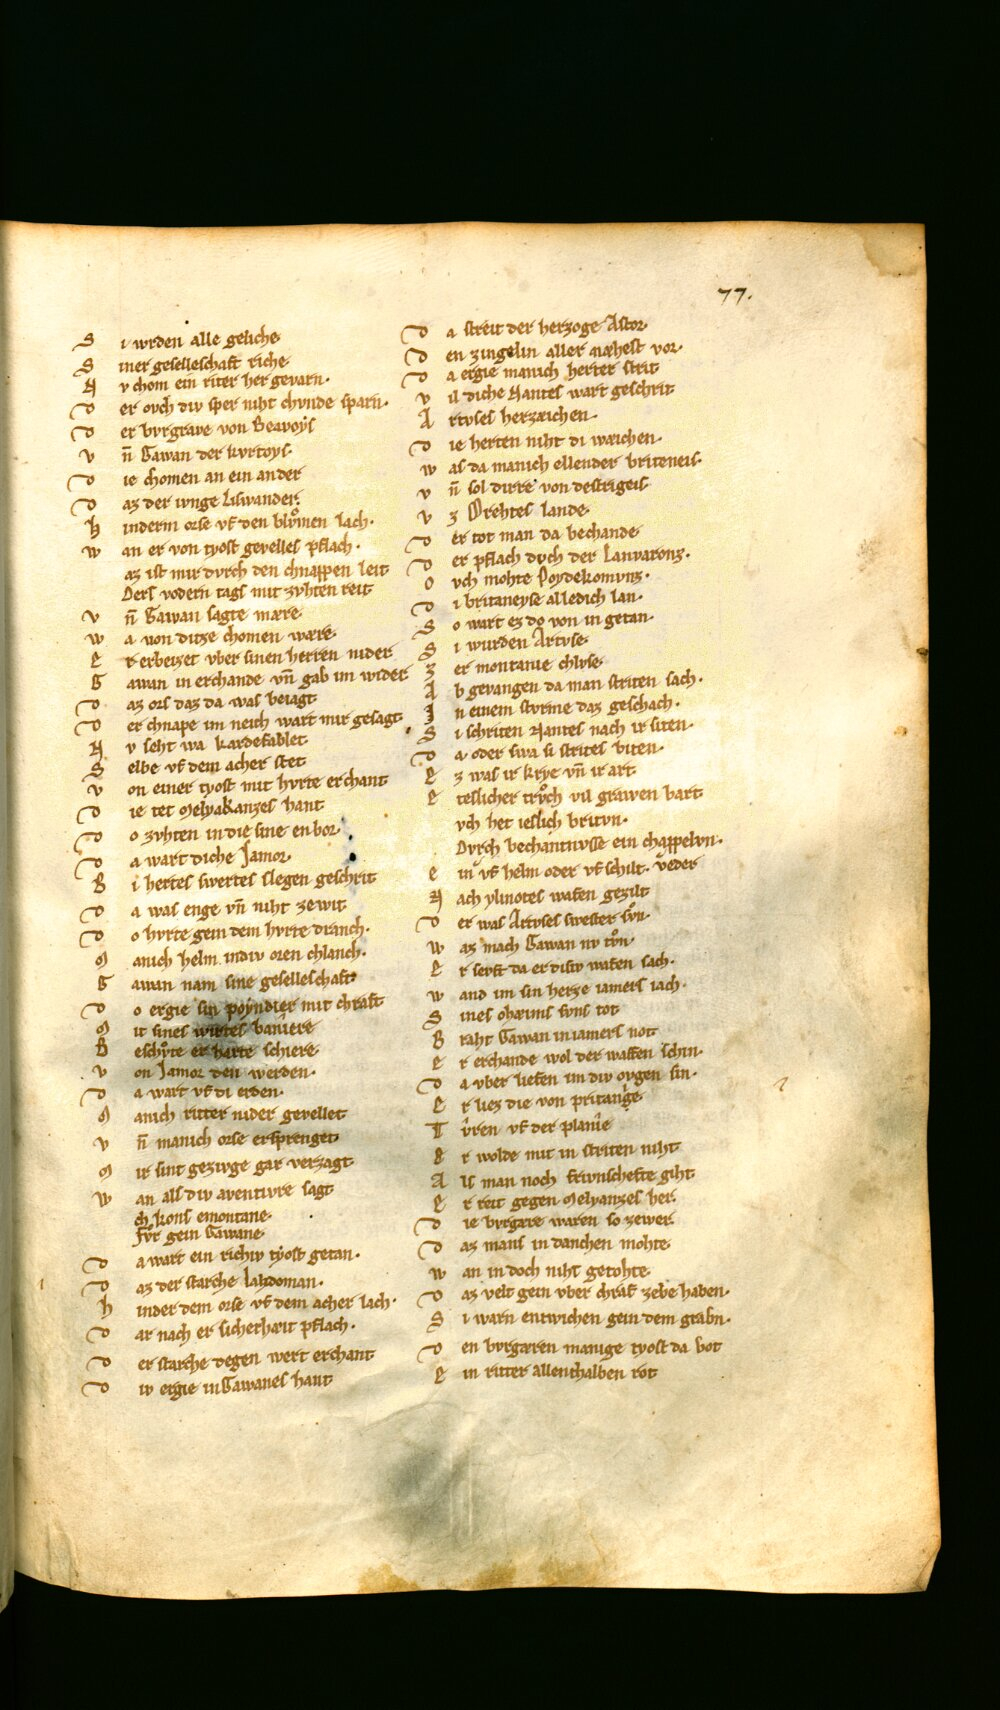 77.
S i wrden alle geliche
S iner geselleschaft riche
N v chom ein riter her gevarn.
D er ovch div sper niht chvnde sparn.
D er bvrgrave von Beavoys
V n̄ Gawan der kvrtoys.
D ie chomen an ein ander
D az der ivnge Liswander.
H inderm orse vf den blvͦmen lach.
W an er von tyost gevelles pflach.
az ist mir dvrch den chnappen leit
Ders vodern tags mit zvhten reit
V n̄ Gawan sagte mære
W a von ditze chomen wære.
E r erbeizet vber sinen herren nider
G awan in erchande vn̄ gab im wider
D az ors daz da was beiagt
D er chnape im neich wart mir gesagt
N v seht wa kardefablet
S elbe vf dem acher stet
V on einer tyost mit hvrte erchant
D ie tet Melyakanzes hant
D o zvhten in die sine enbor.
D a wart diche Jamor.
B i hertes swertes slegen geschrit
D a was enge vn̄ niht ze wit
D o hvrte gein dem hvrte dranch.
M anich helm indiv oren chlanch.
G awan nam sine geselleschaft
D o ergie sin poyndier mit chraft
M it sines wirtes baniere
B eschvͦte er harte schiere
V on Jamor den werden.
D a wart vf di erden.
M anich ritter nider gevellet
V n̄ manich orse ersprenget
M ir sint gezivge gar verzagt
W an als div aventivre sagt
ch kons emontane
Fvͦr gein Gawane
D a wart ein richiv tyost getan.
D az der starche Lahdoman.
H inder dem orse vf dem acher lach.
D ar nach er sicherhæit pflach.
D er starche degen wert erchant
D iv ergie in Gawanes hant
D a streit der herzoge Astor
D en zingelin aller næhest vor.
D a ergie manich herter strit
V il diche Nantes wart geschrit
A rtvses herzæichen.
D ie herten niht di wæichen.
W as da manich ellender briteneis.
V n̄ sol dirre von destrigeis
V z Drehtes lande
D er tot man da bechande
D er pflach dvch der Lanvaronz.
O vch mohte Poydekomvnz.
D i britaneyse alledich lan.
S o wart ez do von in getan.
S i wurden Artvse
Z er montanie chlvse
A b gevangen da man striten sach.
I n einem stvrme daz geschach.
S i schriten Nantes nach ir siten.
D a oder swa si strites biten.
E z was ir krye vn̄ ir art
E teslicher trvͦch vil grawen bart
vch het ieslich britvn.
Dvrch bechantnvsse ein chappelvn.
E in vf helm oder vf schilt. veder
N ach ylinotes wafen gezilt
D er was Artvses swester svͦn.
W az mach Gawan nv tvͦn.
E r sevft da er disiv wafen sach.
W and im sin herze iamers iach.
S ines ohæims svns tot
B raht Gawan in iamers not
E r erchande wol der waffen schin.
D a vber liefen im div ovgen sin.
E r liez die von pritange
T vͦren vf der planie
E r wolde mit in striten niht
A ls man noch frivnschefte giht
E r reit gegen Melyanzes her.
D ie bvrgære waren so zewer.
D az mans in danchen mohte
W an in doch niht getohte
D az velt gein vber chraft zebe haben.
S i warn entwichen gein dem grabn.
D en bvrgæren manige tyost da bot
E in ritter allenthalben rot